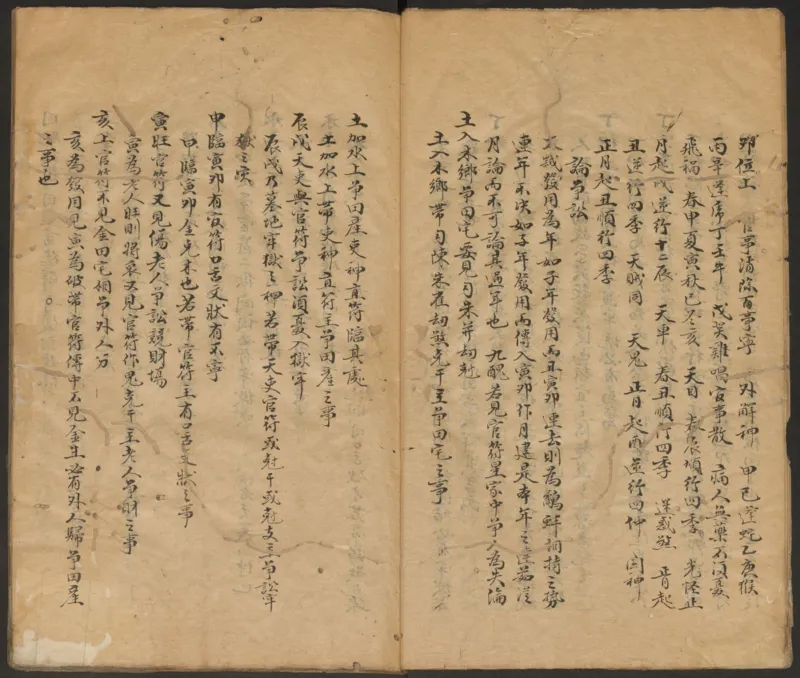 卯位上 官事消除百事寧 外解神 甲己蛇乙庚猴
丙辛 虎丁壬牛 戊癸雞唱官事散 病人無藥不須憂
飛禍 春申夏寅秋巳冬亥 天目 春辰順行四季 光怪止
月起戌逆行十二辰 天車 春丑順行四季 迷惑煞 正月起
丑逆行四季 天賊同 天鬼 正月起酉逆行四仲 關神
正月起丑順行四季
論爭訟
太歲發用為年如子年發用而丑寅卯連去則為鷸蚌相持之勢
連年不決如子年發用而傳入寅卯作月建是本年之 茹從
月論而不可論其過年也 九醜若見官符星家中爭人為失倫
土入木鄉爭田宅要見勾朱并劫尅
土入木鄉帶勾陳朱雀劫煞尅干主爭田宅之事
土加水上爭田產吏神直符臨其處
土加水上帶吏神直符主爭田產之事
辰戌天吏與官符爭訟須憂入獄牢
辰戌乃墓地牢獄之神若帶天吏官符或尅干或尅支主爭訟牢
獄之災
申臨寅卯有官符口舌文狀有不寧
申臨寅卯金尅木也若帶官符主有口舌文狀之事
寅旺官符又見傷老人爭訟競財場
寅為老人旺則將衰又見官符作鬼尅干主老人爭財之事
亥上官符不見金田宅婚爭外人分
亥為發用見寅為破帶官符傳中不見金生必有外人歸爭田產
之事也